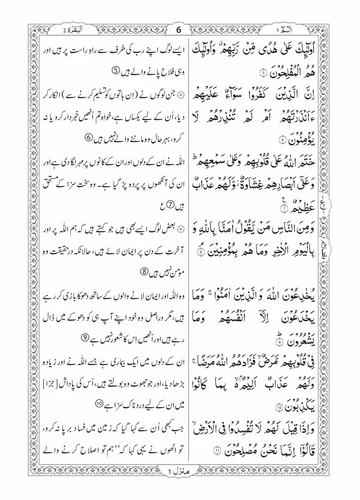 البقرة ٢
6
الٓمّٓ ١
اُولٰٓئِكَ عَلٰى هُدًى مِّنْ رَّبِّهِمْ ۗ وَاُولٰٓئِكَ
هُمُ الْمُفْلِحُوْنَ ۝
اِنَّ الَّذِيْنَ كَفَرُوْا سَوَآءٌ عَلَيْهِمْ
ءَاَنْذَرْتَهُمْ اَمْ لَمْ تُنْذِرْهُمْ لَا
يُؤْمِنُوْنَ ۝
خَتَمَ اللّٰهُ عَلٰى قُلُوْبِهِمْ وَعَلٰى سَمْعِهِمْ ۭ
وَعَلٰٓى اَبْصَارِهِمْ غِشَاوَةٌ ۡ وَّلَهُمْ عَذَابٌ
عَظِيْمٌ ۝
وَمِنَ النَّاسِ مَنْ يَّقُوْلُ اٰمَنَّا بِاللّٰهِ وَ
بِالْيَوْمِ الْاٰخِرِ وَمَا هُمْ بِمُؤْمِنِيْنَ ۝
يُخٰدِعُوْنَ اللّٰهَ وَالَّذِيْنَ اٰمَنُوْا ۚ وَمَا
يَخْدَعُوْنَ اِلَّآ اَنْفُسَهُمْ وَمَا
يَشْعُرُوْنَ ۝
فِيْ قُلُوْبِهِمْ مَّرَضٌ ۙ فَزَادَهُمُ اللّٰهُ مَرَضًا ۚ
وَلَهُمْ عَذَابٌ اَلِيْمٌۢ ۙ بِمَا كَانُوْا
يَكْذِبُوْنَ ۝
وَاِذَا قِيْلَ لَهُمْ لَا تُفْسِدُوْا فِي الْاَرْضِ ۙ
قَالُوْٓا اِنَّمَا نَحْنُ مُصْلِحُوْنَ ۝
ایسے لوگ اپنے رب کی طرف سے راہِ راست پر ہیں اور
وہی فلاح پانے والے ہیں ⑤
جن لوگوں نے (ان باتوں کو تسلیم کرنے سے) انکار کر
دیا، اُن کے لیے یکساں ہے، خواہ تم انھیں خبردار کرو یا نہ
کرو، بہرحال وہ ماننے والے نہیں ہیں ⑥
اللہ نے ان کے دلوں اور ان کے کانوں پر مہر لگا دی ہے اور
ان کی آنکھوں پر پردہ پڑ گیا ہے۔ وہ سخت سزا کے مستحق
ہیں ⑦ ع
بعض لوگ ایسے بھی ہیں جو کہتے ہیں کہ ہم اللہ پر اور
آخرت کے دن پر ایمان لائے ہیں، حالانکہ درحقیقت وہ
مومن نہیں ہیں ⑧
وہ اللہ اور ایمان لانے والوں کے ساتھ دھوکا بازی کر رہے
ہیں، مگر دراصل وہ خود اپنے آپ ہی کو دھوکے میں ڈال
رہے ہیں اور انھیں اس کا شعور نہیں ہے ⑨
ان کے دلوں میں ایک بیماری ہے جسے اللہ نے اور زیادہ
بڑھا دیا، اور جو جھوٹ وہ بولتے ہیں، اُس کی پاداش [جزا]
میں ان کے لیے دردناک سزا ہے ⑩
جب کبھی اُن سے کہا گیا کہ زمین میں فساد برپا نہ کرو،
تو انھوں نے یہی کہا کہ "ہم تو اصلاح کرنے والے
منزل ١